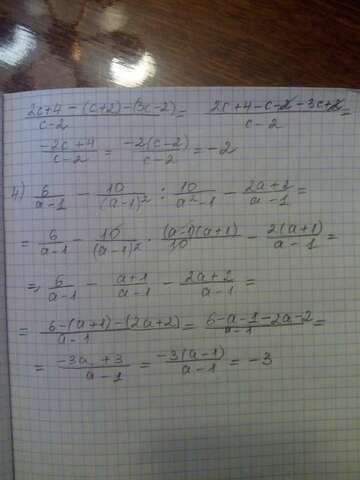 (2c+4-(c+2)-(3c-2))/(c-2) = (2c+4-c-2-3c+2)/(c-2) =
(-2c+4)/(c-2) = (-2(c-2))/(c-2) = -2
4) 6/(a-1) - 10/(a-1)² : 10/(a²-1) - (2a+2)/(a-1) =
= 6/(a-1) - 10/(a-1)² · ((a-1)(a+1))/10 - (2(a+1))/(a-1) =
= 6/(a-1) - (a+1)/(a-1) - (2a+2)/(a-1) =
= (6-(a+1)-(2a+2))/(a-1) = (6-a-1-2a-2)/(a-1) =
= (-3a+3)/(a-1) = (-3(a-1))/(a-1) = -3